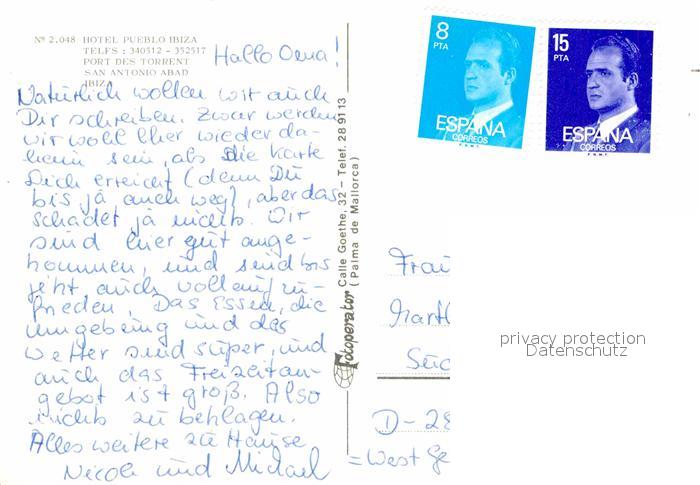 Nº 2.048 HOTEL PUEBLO IBIZA
TELFS : 340512 - 352517
PORT DES TORRENT
SAN ANTONIO ABAD
IBIZA
Hallo Oma!
Natürlich wollen wir auch
Dir schreiben. Zwar werden
wir wohl eher wieder da-
heim sein, als die Karte
Dich erreicht (denn Du
bis ja auch weg), aber das
schadet ja nichts. Wir
sind hier gut ange-
kommen, und sind bis
jetzt auch vollauf zu-
frieden. Das Essen, die
Umgebung und das
Wetter sind super, und
auch das Freizeitan-
gebot ist groß. Also
nichts zu beklagen.
Alles weitere zu Hause
Nicole und Michael
Fotoperator Calle Goethe, 32 – Telef. 28 91 13
( Palma de Mallorca )
8
PTA
ESPAÑA
CORREOS
F.N.M.T.
15
PTA
ESPAÑA
CORREOS
F.N.M.T.
Frau
D-28
= West Ge
privacy protection
Datenschutz